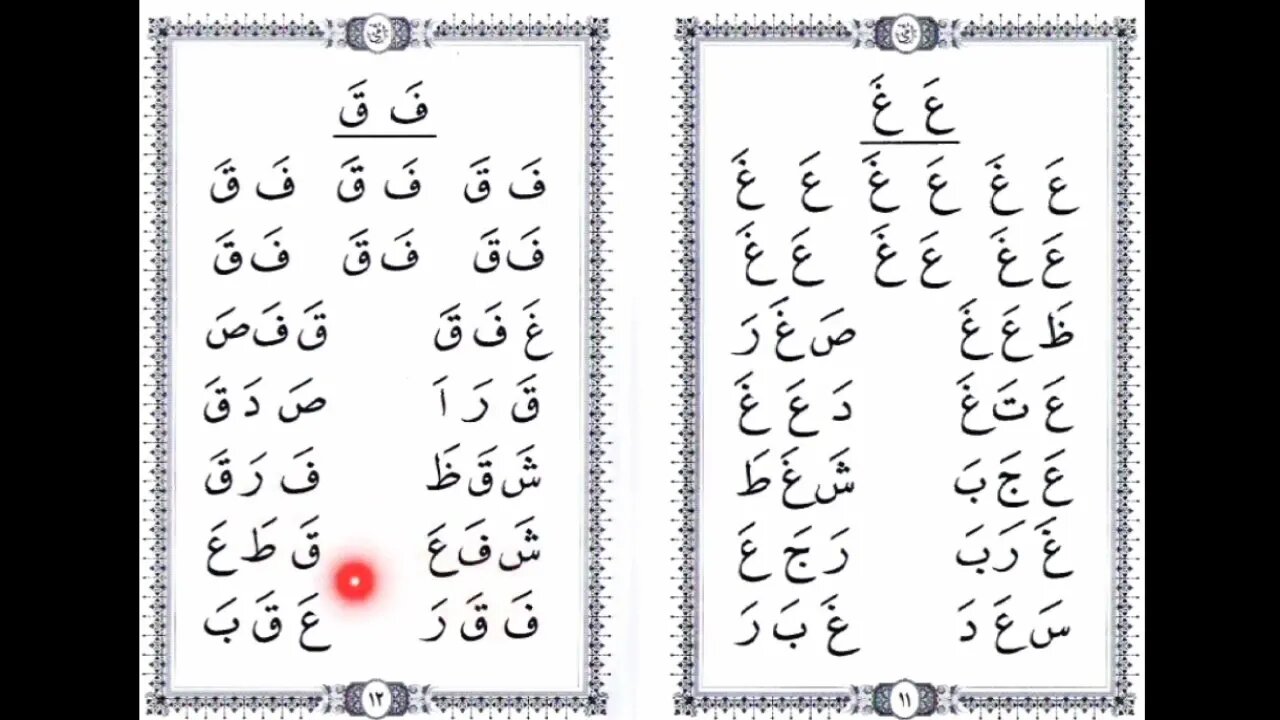 عَ غَ
عَ غَ عَ غَ عَ غَ
عَ غَ عَ غَ عَ غَ
ظَ عَ غَ صَ غَ رَ
عَ تَ غَ دَ عَ غَ
عَ جَ بَ شَ غَ طَ
غَ رَ بَ رَ جَ عَ
سَ عَ دَ غَ بَ رَ
١١
فَ قَ
فَ قَ فَ قَ فَ قَ
فَ قَ فَ قَ فَ قَ
غَ فَ قَ قَ فَ صَ
قَ رَ اَ صَ دَ قَ
شَ قَ ظَ فَ رَ قَ
شَ فَ عَ قَ طَ عَ
فَ قَ رَ عَ قَ بَ
١٢